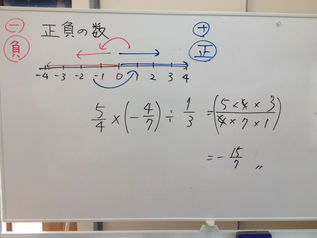 ㊀ 正負の数 ㊉
負 正
-4 -3 -2 -1 0 1 2 3 4
5/4 × (-4/7) ÷ 1/3 = (5×4×3 / 4×7×1)
= - 15/7 〃